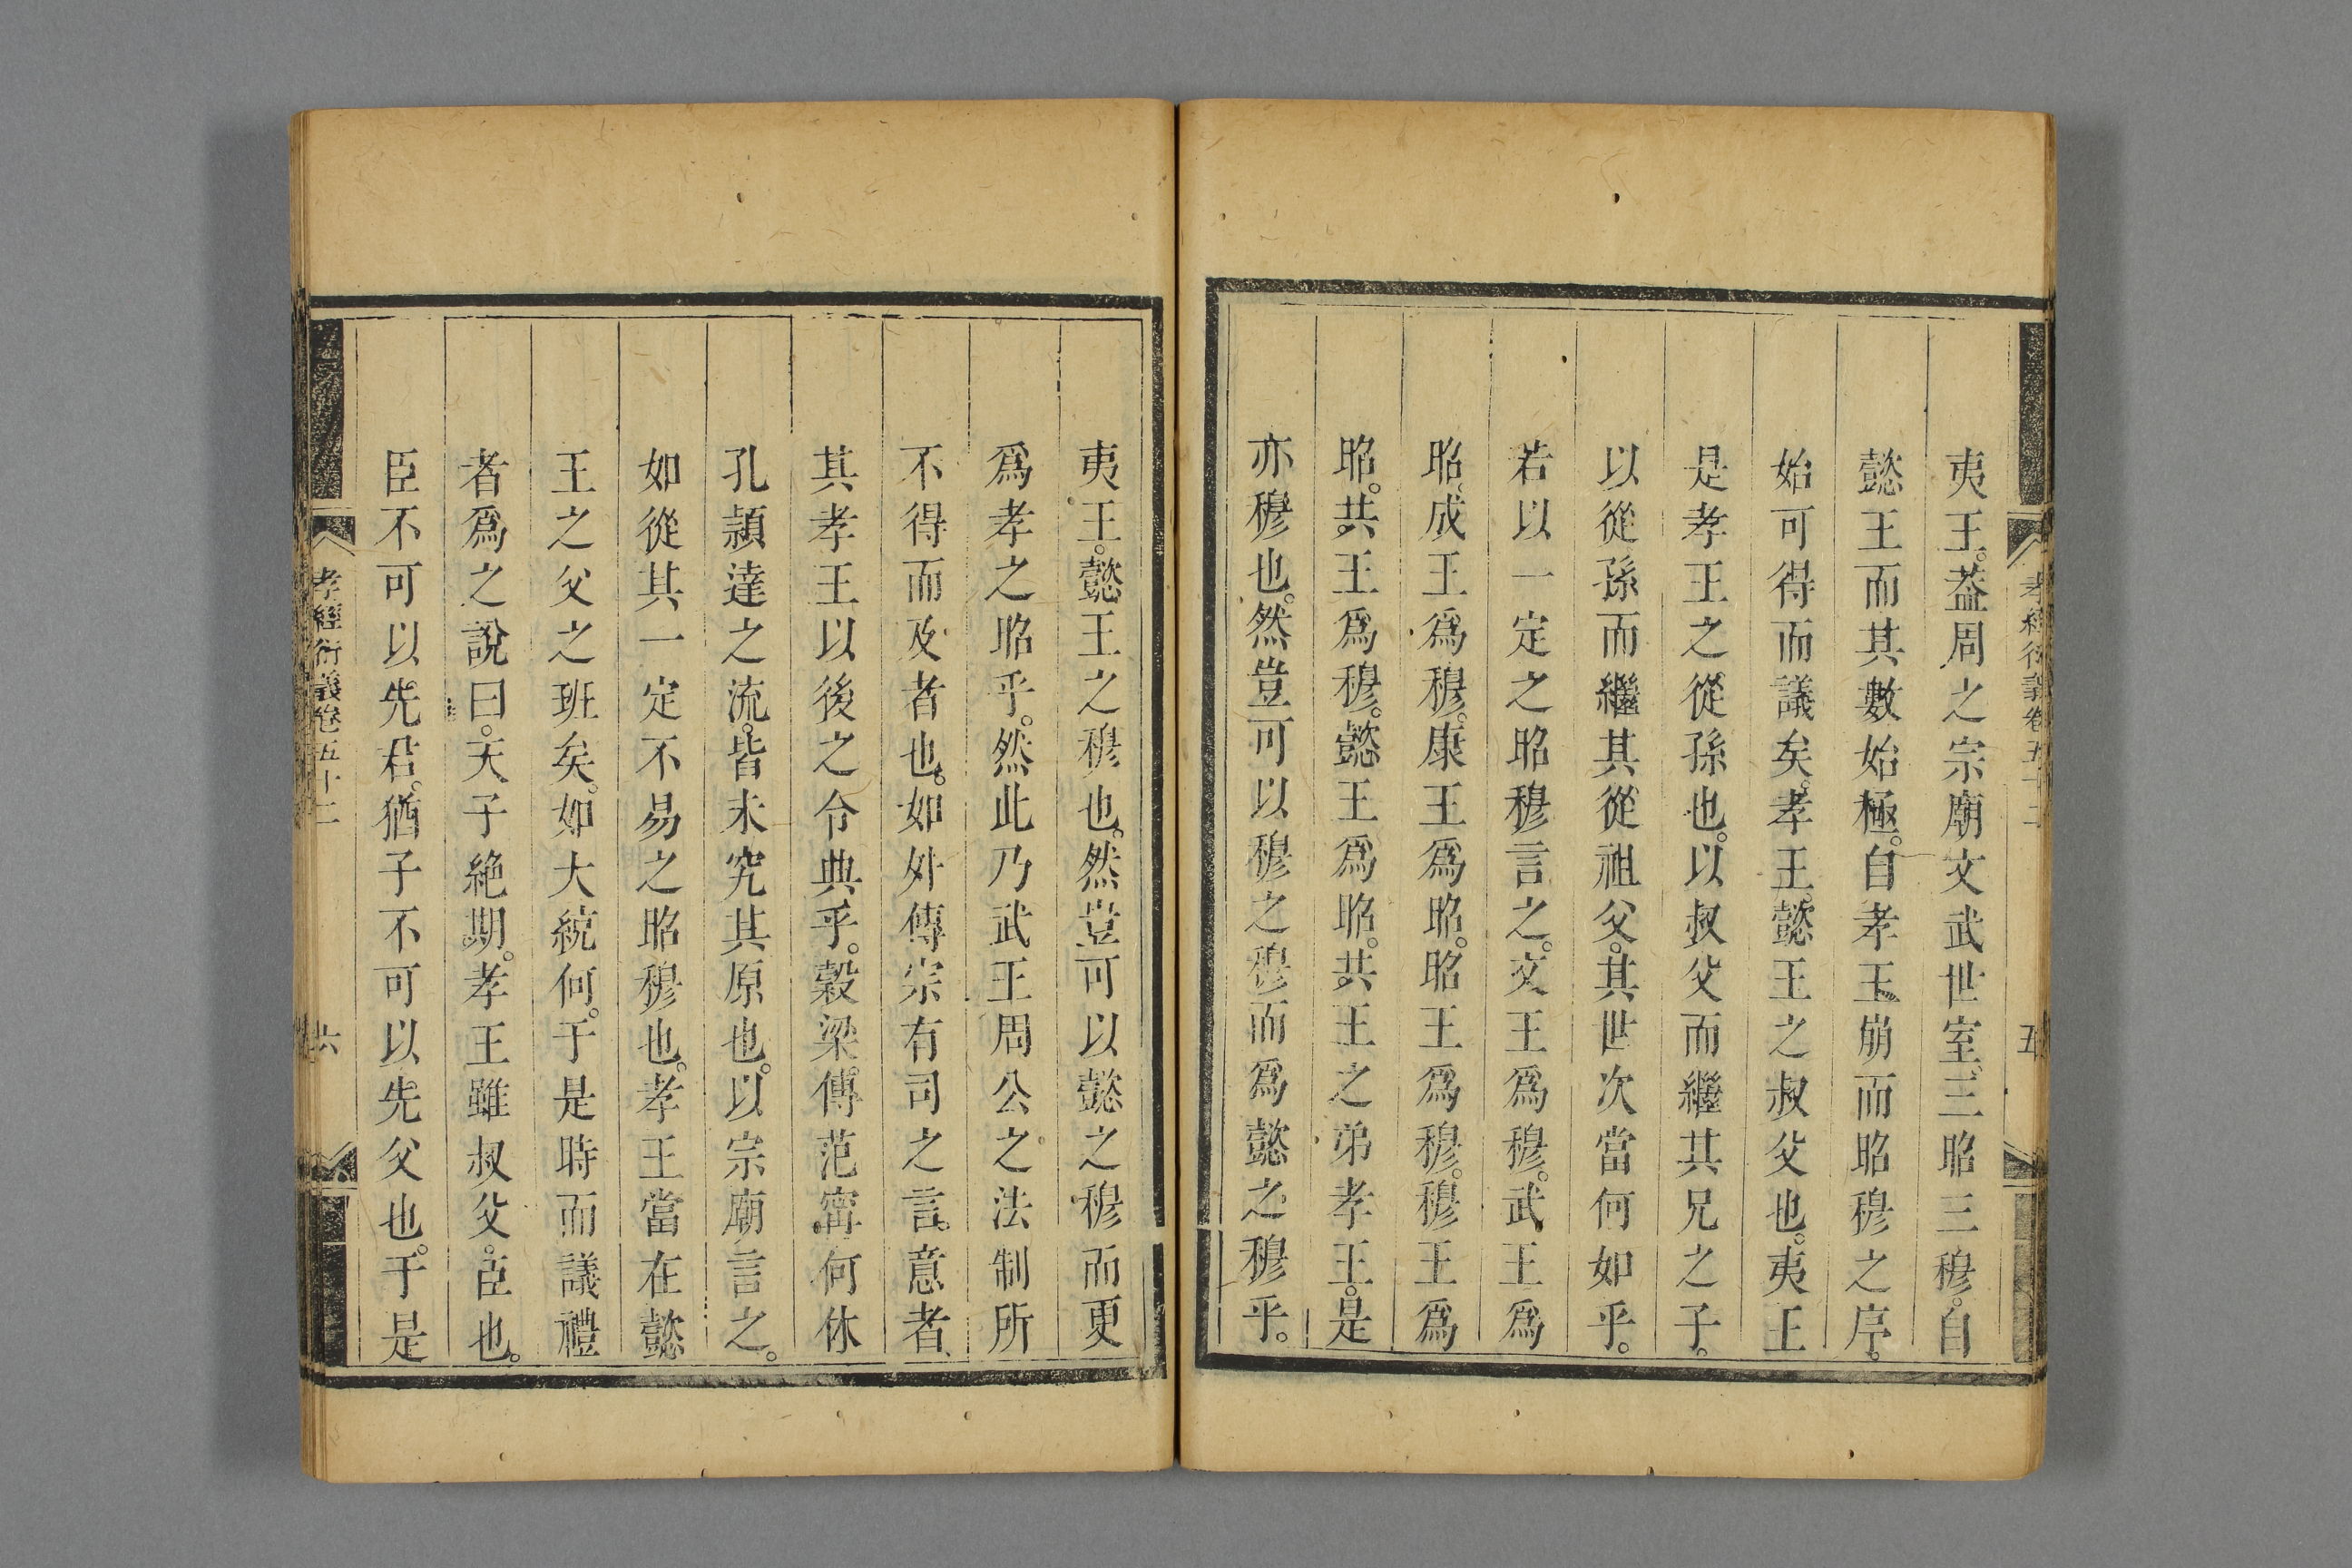 夷王。葢周之宗廟文武世室、三昭三穆。自
懿王而其數始極。自孝王崩而昭穆之序。
始可得而議矣。孝王。懿王之叔父也。夷王
是孝王之從孫也。以叔父而繼其兄之子。
以從孫而繼其從祖父。其世次當何如乎。
若以一定之昭穆言之。文王爲穆。武王爲
昭、成王爲穆。康王爲昭。昭王爲穆。穆王爲
昭。共王爲穆。懿王爲昭。共王之弟孝王。是
亦穆也。然豈可以穆之穆而爲懿之穆乎。
孝經衍義卷五十二
五
夷王。懿王之穆也。然豈可以懿之穆而更
爲孝之昭乎。然此乃武王周公之法制所
不得而及者也。如外傳宗有司之言。意者、
其孝王以後之令典乎。穀梁傳范甯何休
孔頴達之流。皆未究其原也。以宗廟言之。
如從其一定不易之昭穆也。孝王當在懿
王之父之班矣。如大統何。于是時而議禮
者爲之說曰。天子絶期。孝王雖叔父。臣也。
臣不可以先君。猶子不可以先父也。于是
孝經衍義卷五十二
六